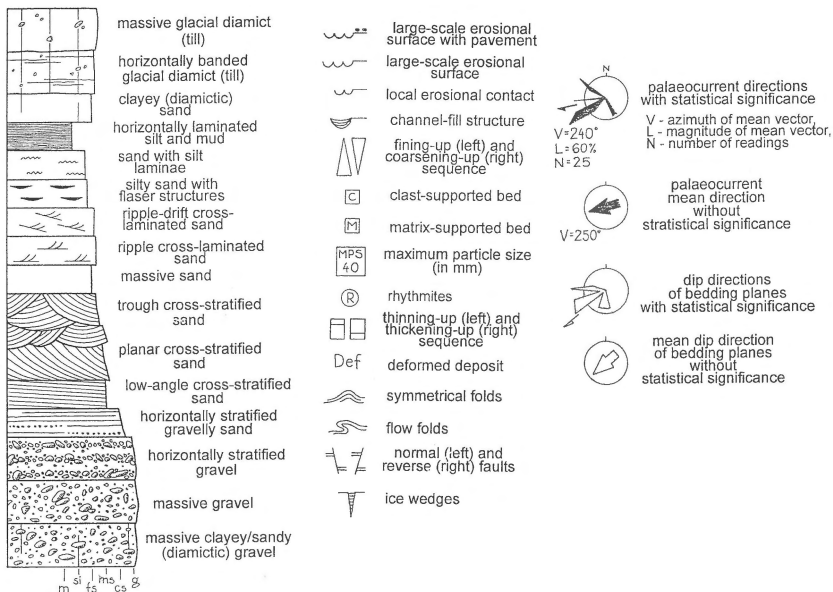 massive glacial diamict
(till)
horizontally banded
glacial diamict (till)
clayey (diamictic)
sand
horizontally laminated
silt and mud
sand with silt
laminae
silty sand with
flaser structures
ripple-drift cross-
laminated sand
ripple cross-laminated
sand
massive sand
trough cross-stratified
sand
planar cross-stratified
sand
low-angle cross-stratified
sand
horizontally stratified
gravelly sand
horizontally stratified
gravel
massive gravel
massive clayey/sandy
(diamictic) gravel
m si fs ms cs g
large-scale erosional
surface with pavement
large-scale erosional
surface
local erosional contact
channel-fill structure
fining-up (left) and
coarsening-up (right)
sequence
C clast-supported bed
M matrix-supported bed
MPS
40
maximum particle size
(in mm)
R rhythmites
thinning-up (left) and
thickening-up (right)
sequence
Def deformed deposit
symmetrical folds
flow folds
normal (left) and
reverse (right) faults
ice wedges
N
V=240°
L=60%
N=25
palaeocurrent directions
with statistical significance
V - azimuth of mean vector,
L - magnitude of mean vector,
N - number of readings
V=250°
palaeocurrent
mean direction
without
stratistical significance
dip directions
of bedding planes
with statistical significance
mean dip direction
of bedding planes
without
statistical significance